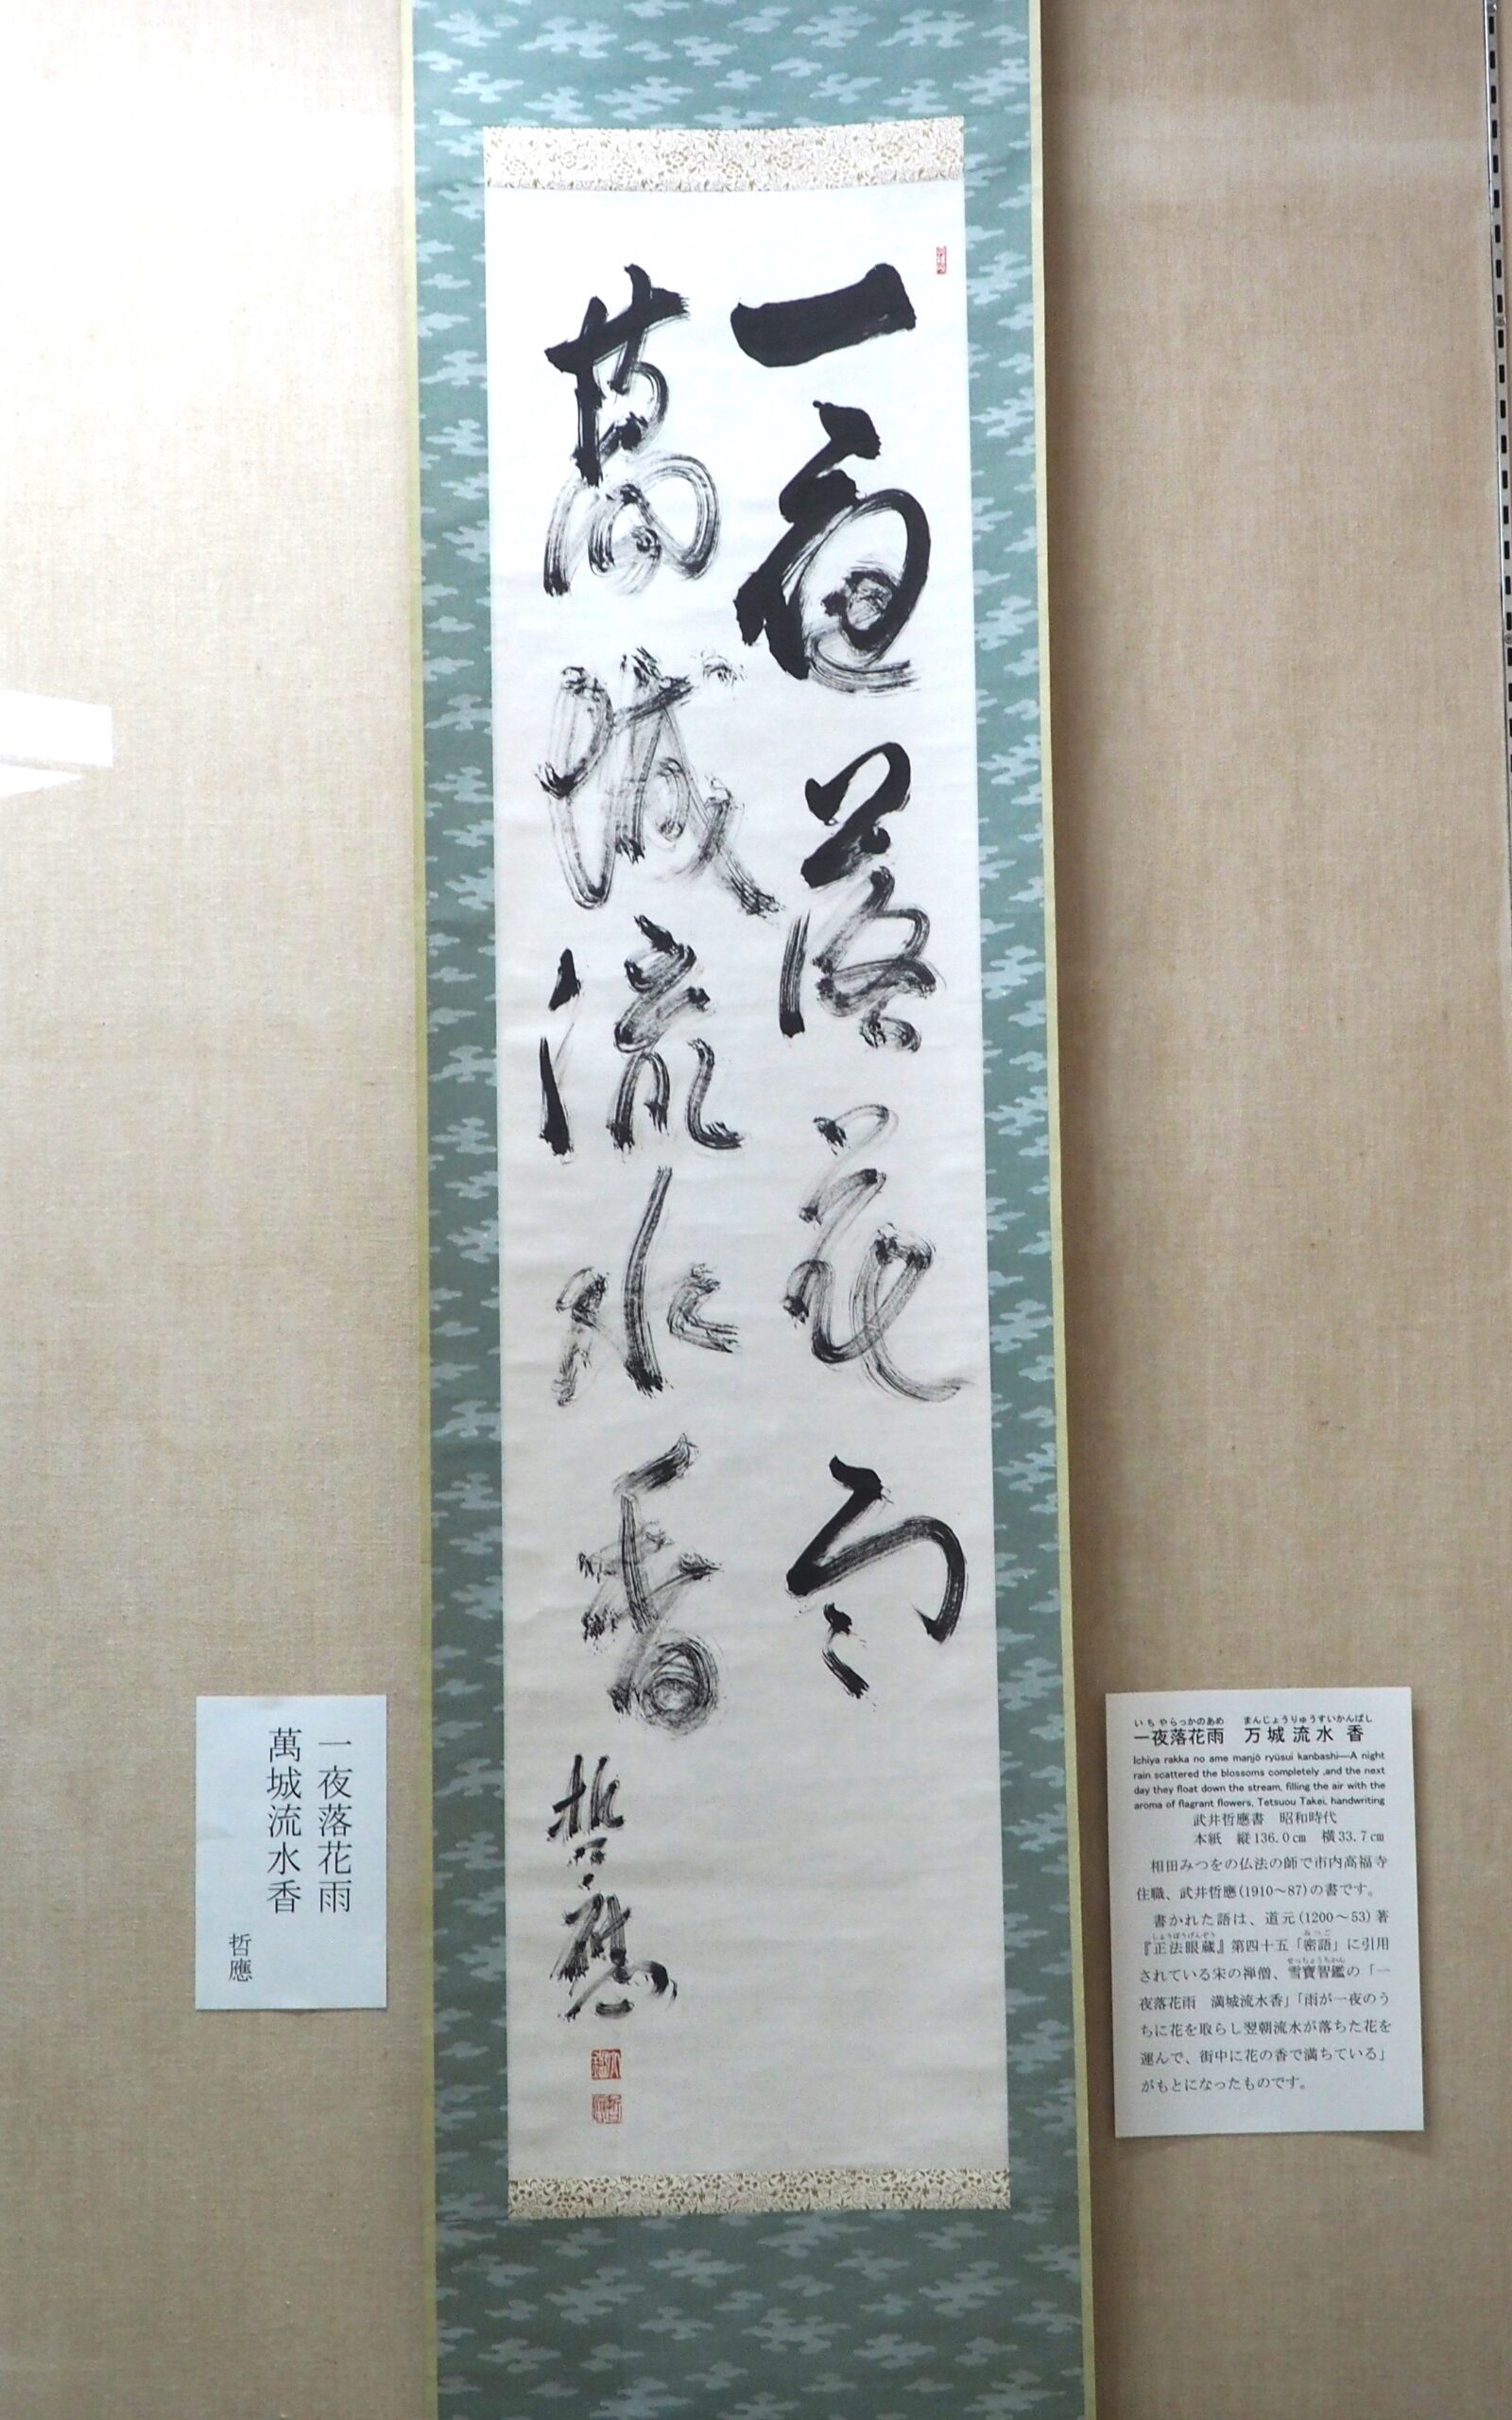 一夜落花雨
萬城流水香
哲應
一夜落花雨
萬城流水香
哲應
いちやらっかのあめ　まんじょうりゅうすいかんばし
一夜落花雨　万城流水　香
Ichiya rakka no ame manjō ryūsui kanbashi—A night
rain scattered the blossoms completely ,and the next
day they float down the stream, filling the air with the
aroma of flagrant flowers, Tetsuou Takei, handwriting
武井哲應書　昭和時代
本紙　縦136.0㎝　横33.7㎝
相田みつをの仏法の師で市内高福寺
住職、武井哲應(1910～87)の書です。
書かれた語は、道元(1200～53)著
しょうぼうげんぞう　みつご
『正法眼蔵』第四十五「密語」に引用
せっちょうちかん
されている宋の禅僧、雪寶智鑑の「一
夜落花雨　満城流水香」「雨が一夜のう
ちに花を取らし翌朝流水が落ちた花を
運んで、街中に花の香で満ちている」
がもとになったものです。